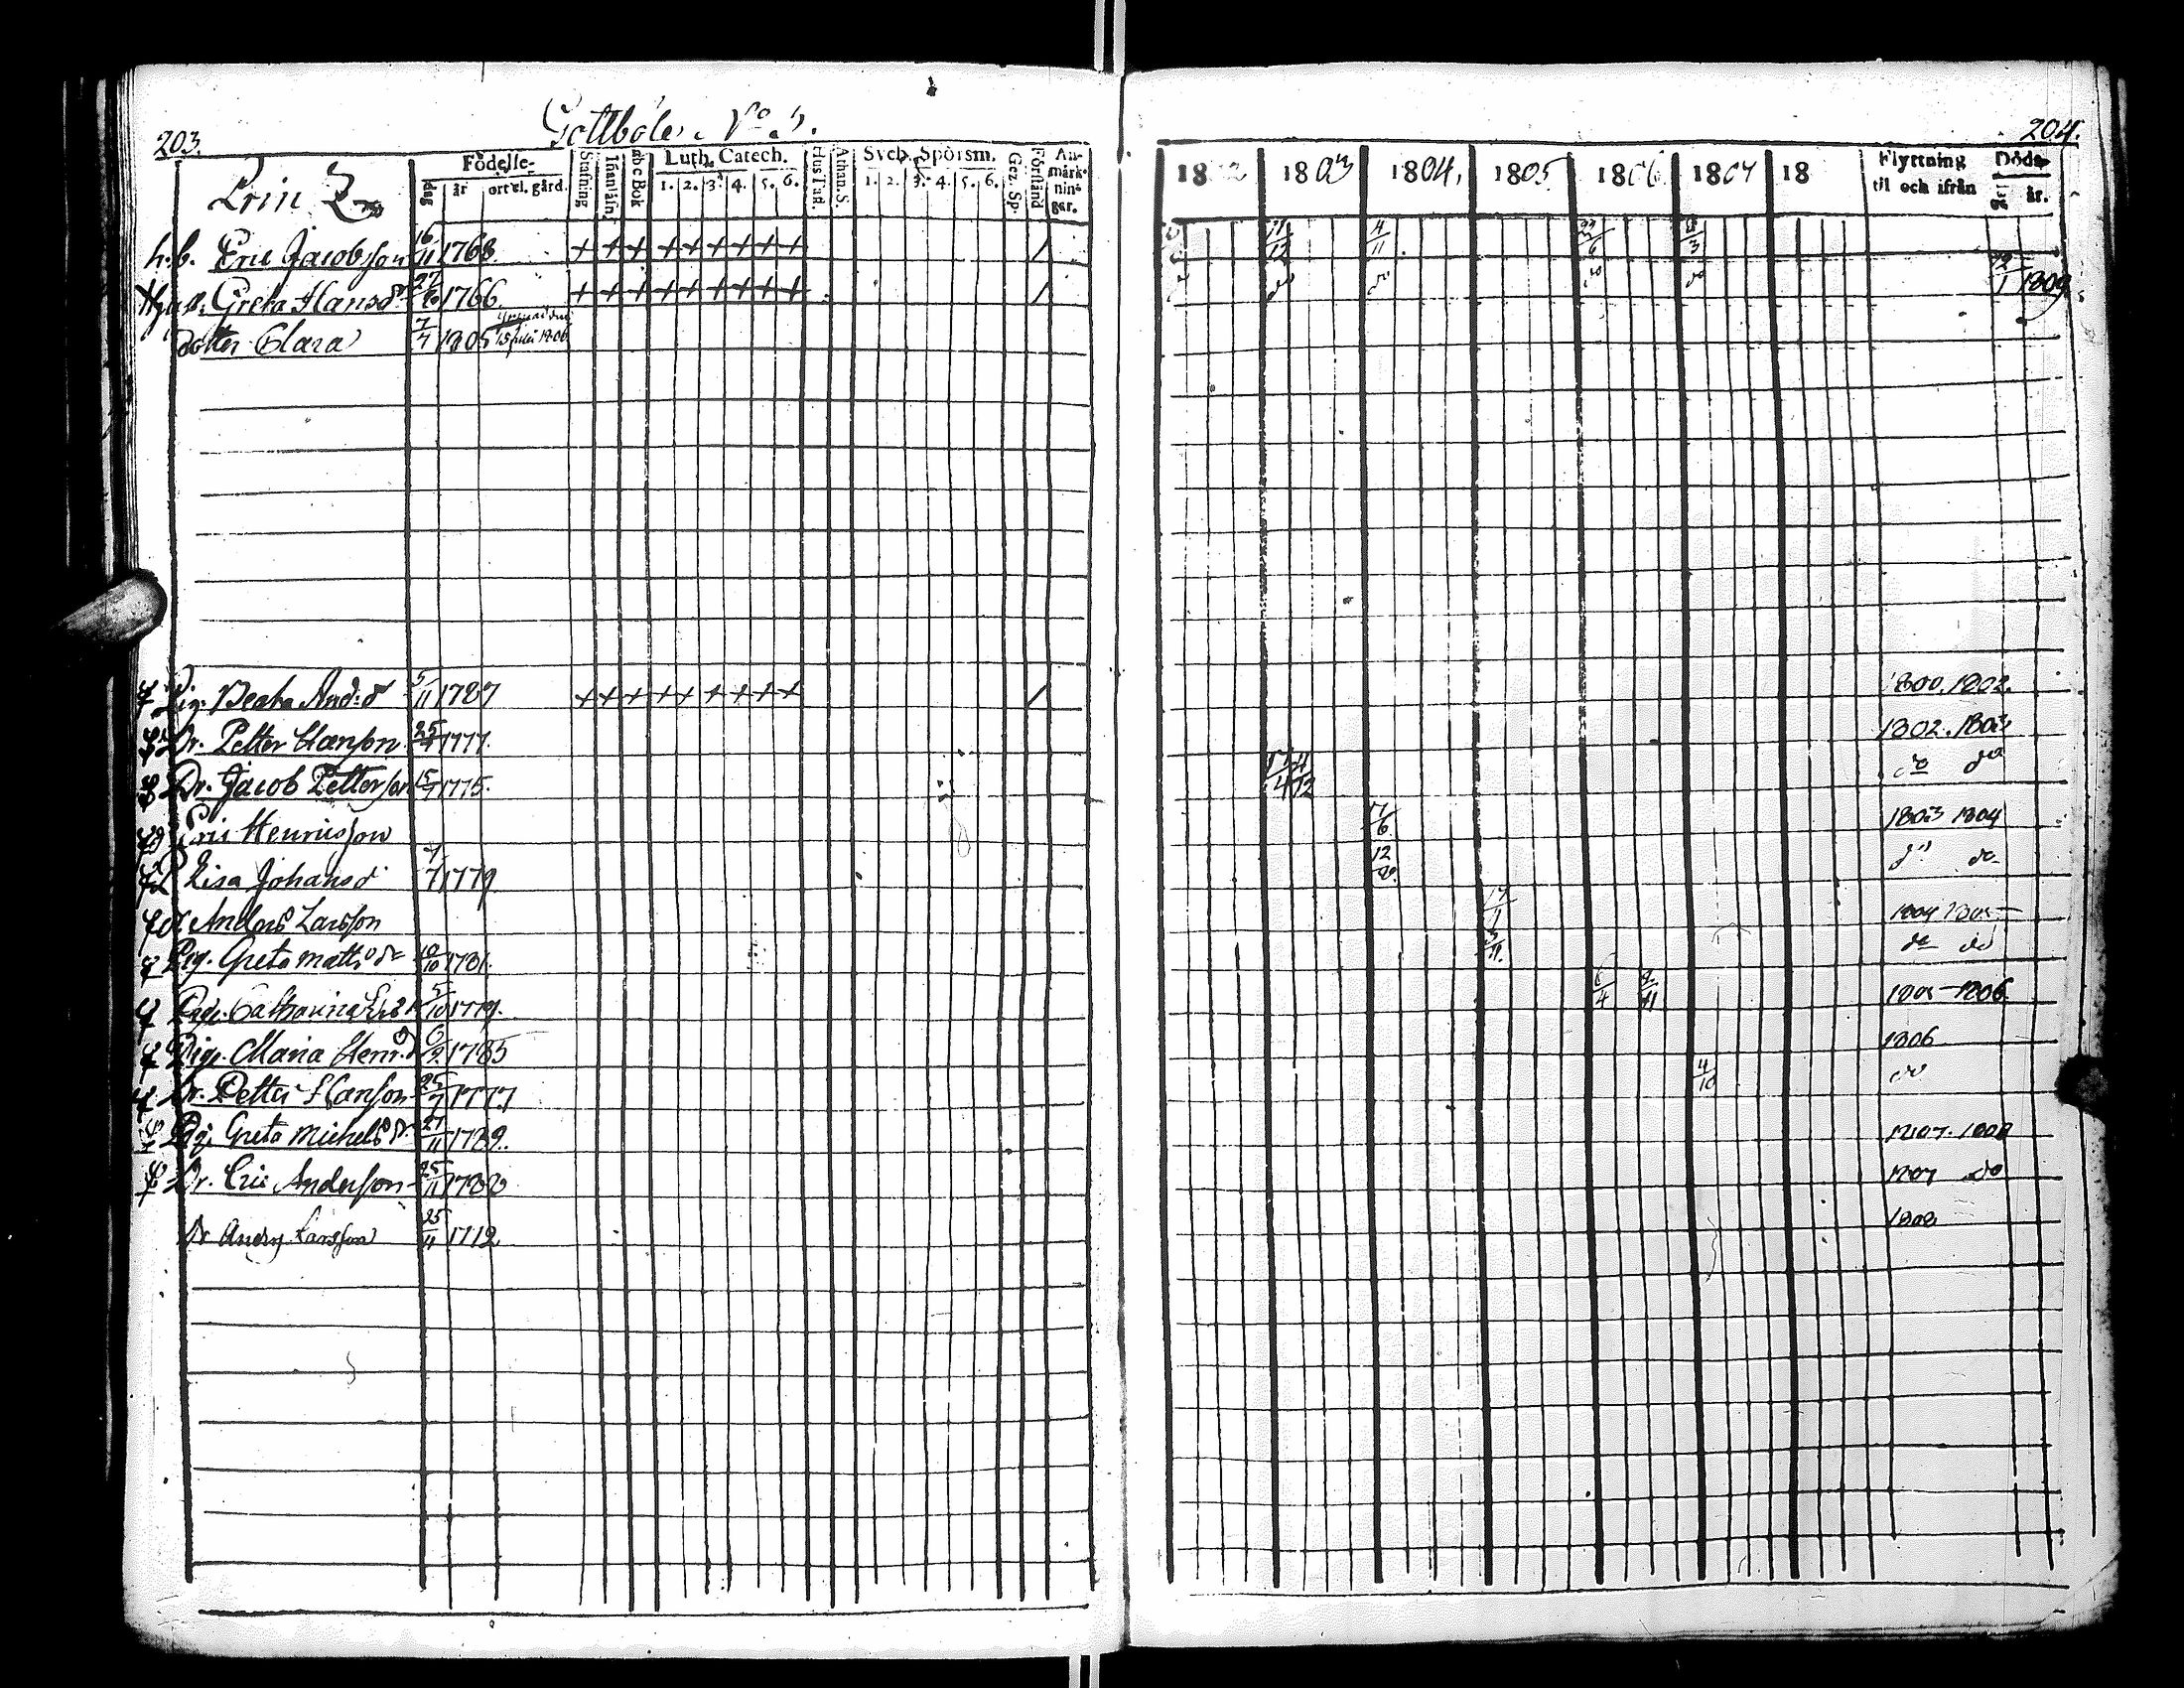 203. Gottböle No 3.
Födelse- Luth. Catech. Sveb. Spörsm.
dag år ort el. gård. Stafning Innanläsn. abc Bok 1. 2. 3. 4. 5. 6. Hus Tafl. Athan. S. 1. 2. 3. 4. 5. 6. Gez. Sp. Förstånd Anmärkningar.
h.b. Eric Jacobsson 16/11 1768 + + + + + + + + + /
Hust: Greta Hansdr 27/ 1766 + + + + + + + + + /
dotter Clara 7/4 1805 15 julii 1806
Pig. Beata And:dr 5/11 1787 + + + + + + + + + /
Dr. Petter Hanson 25/7 1777.
Dr. Jacob Petterson 15/7 1775.
Eric Henricsson
Lisa Johansdr 7/7 1779
Anders Larsson
Pig. Greta Matts dr /10 1781.
Pig. Catharina 5/10 1779.
Pig. Maria Henr.dr 6/9 1785
Dr. Petter Hanson 25/7 1777
Pig. Greta Michelsdr. 27/11 1789.
Dr. Eric Anderson 25/11 1788
Dr Anders Larsson 25/11 1772
204.
18 1803 1804. 1805 1806 1807 18 Flyttning til och ifrån Döds- dag år.
/12 4/11 22/6 /3
do do do do 12/1 1809
1800. 1802.
1802. 1803
/4 4/12 do do
7/6 1803 1804
12 do do
1804 1805
do do
/4 /11 1805 1806
1806
4/10 do
1807. 1808
1807 do
1808